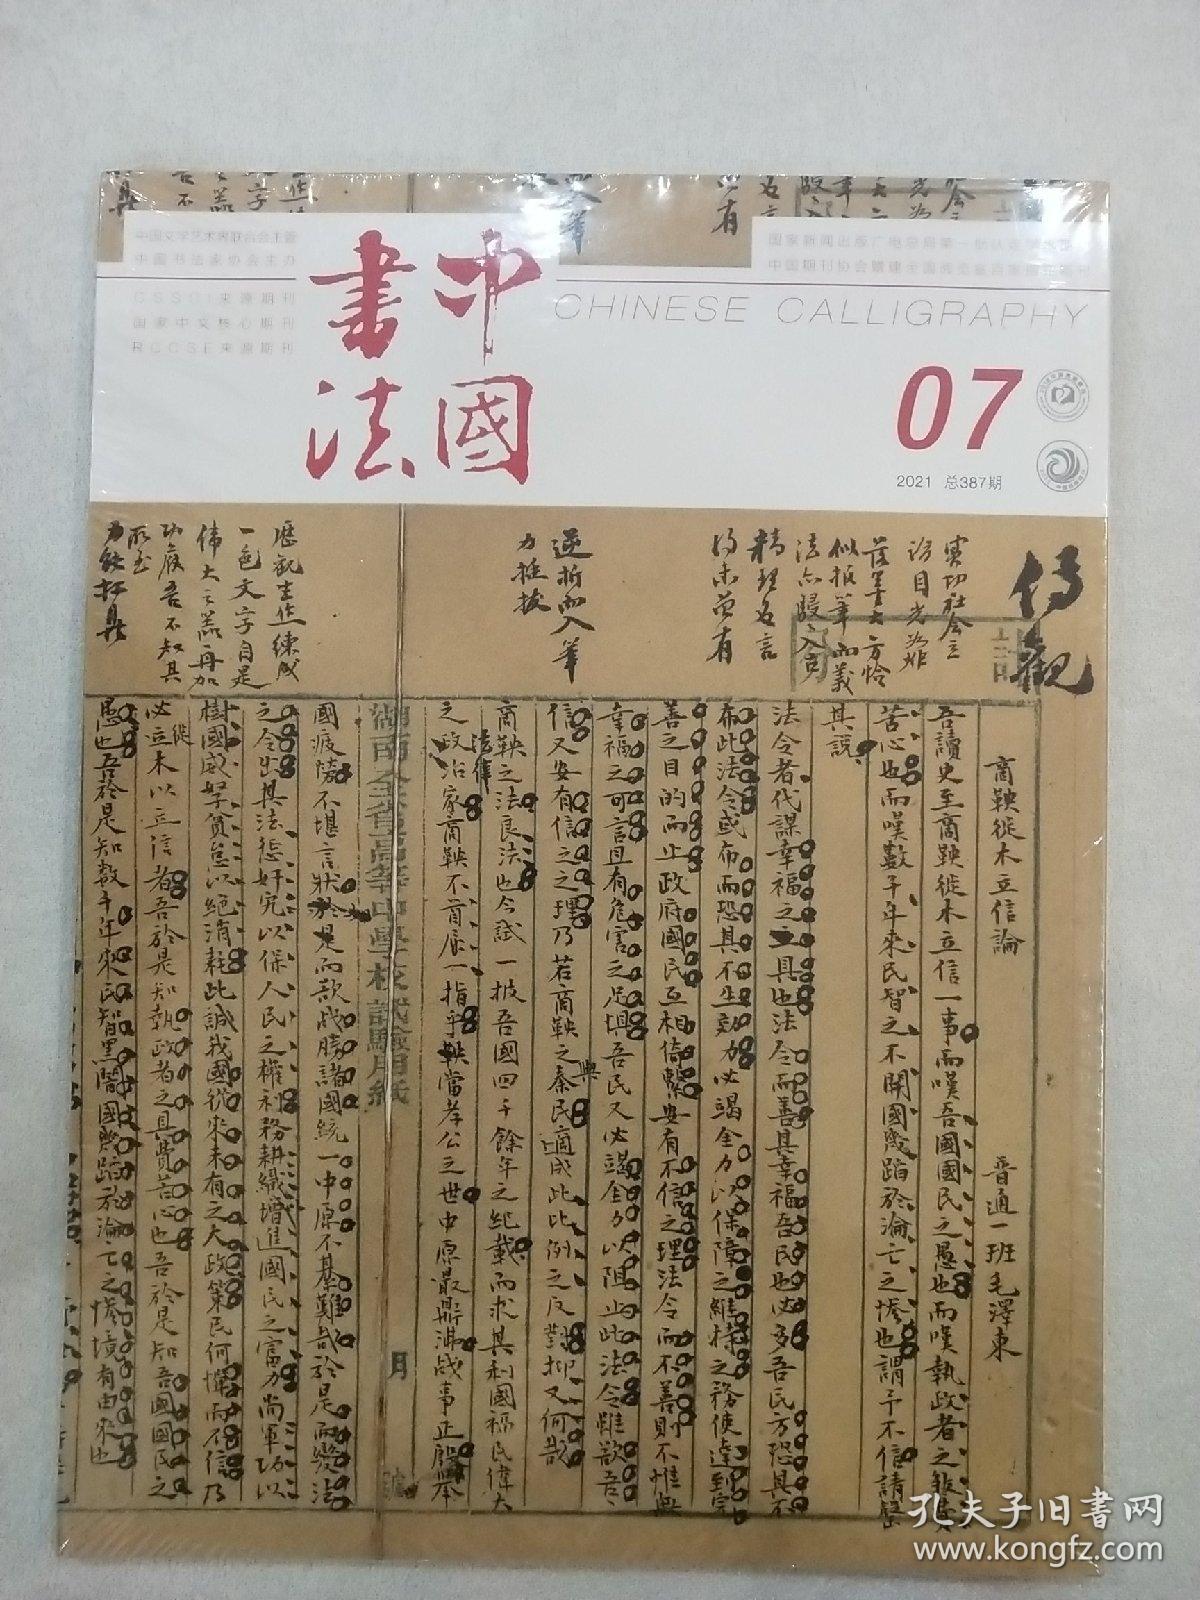 中国文学艺术界联合会主管
中国书法家协会主办
CSSCI来源期刊
国家中文核心期刊
RCCSE来源期刊
中國
書法
中国期刊协会赠建全国阅览室百家
CHINESE CALLIGRAPHY
07
2021 总387期
傳觀
實切社會立
論目光如炬
落筆大方恰
似報筆而義
法亦駸駸入古
精理名言
得未曾有
逆折而入筆
力挺拔
歷觀生作練成
一色文字自是
偉大之器再加
功候吾不知其
所至
力能扛鼎
商鞅徙木立信論 普通一班毛澤東
吾讀史至商鞅徙木立信一事而嘆吾國國民之愚也而嘆執政者之煞費
苦心也而嘆數千年來民智之不開國幾蹈於淪亡之慘也謂予不信請罄
其說
法令者代謀幸福之具也法令而善其幸福吾民也必多吾民方恐其不
布此法令或布而恐其不生效力必竭全力以保障之維持之務使達到完
善之目的而止政府國民互相倚繫安有不信之理法令而不善則不惟無
幸福之可言且有危害之足懼吾民又必竭全力以阻止此法令雖欲吾
信又安有信之之理乃若商鞅之與秦民適成此比例之反對抑又何哉
商鞅之法良法也今試一披吾國四千餘年之紀載而求其利國福民偉大
之政治家商鞅不首屈一指乎鞅當孝公之世中原鼎沸戰事正殷舉
法律
湖南全省高等中學校試驗用紙
月 號
國疲勞不堪言狀於是而欲戰勝諸國統一中原不綦難哉於是而變法
之令出其法懲奸宄以保人民之權利務耕織以增進國民之富力尚軍功以
樹國威孥貧怠以絕消耗此誠我國從來未有之大政策民何憚而不信乃
必徙木以立信者吾於是知執政者之具費苦心也吾於是知吾國國民之
愚也吾於是知數千年來民智黑闇國幾蹈於淪亡之慘境有由來也
孔夫子旧书网
www.kongfz.com